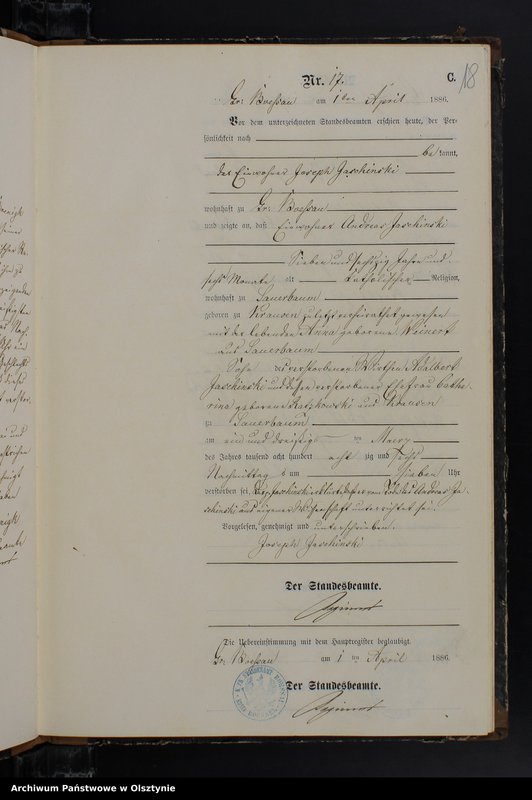 Nr. 17.
C.
18
Gr. Boessau am 1ten April 1886.
Vor dem unterzeichneten Standesbeamten erschien heute, der Per-
sönlichkeit nach
be kannt,
der Einwohner Joseph Jaschinski
wohnhaft zu Gr. Boessau
und zeigte an, daß Einwohner Andreas Jaschinski
Sieben und sechszig Jahre und
sechs Monate alt katholischer Religion,
wohnhaft zu Sauerbaum
geboren zu Krausen zuletzt verheirathet gewesen
mit der lebenden Anna geborene Weinert
aus Sauerbaum
Sohn des verstorbenen Wirthen Adalbert
Jaschinski und dessen verstorbener Ehefrau Catha-
rina geborene und Krausen
zu Sauerbaum
am ein und dreißigsten März
des Jahres tausend acht hundert acht zig und sechs
Nachmittags um Sieben Uhr
verstorben sei, Joseph Jaschinski erklärt daß er von Andreas Ja-
schinski aus eigener Wissenschaft unterrichtet sei.
Vorgelesen, genehmigt und unterschrieben.
Joseph Jaschinski
Der Standesbeamte.
Die Uebereinstimmung mit dem Hauptregister beglaubigt.
Gr. Boessau am 1 ten April 1886.
Der Standesbeamte.
Archiwum Państwowe w Olsztynie